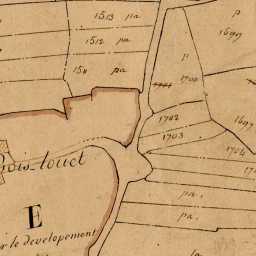 1513 pa
p
1512 pa
1699
p
151 pa
1700
1702
1703
1704
Bois Louet
pa
E
pa
le developement